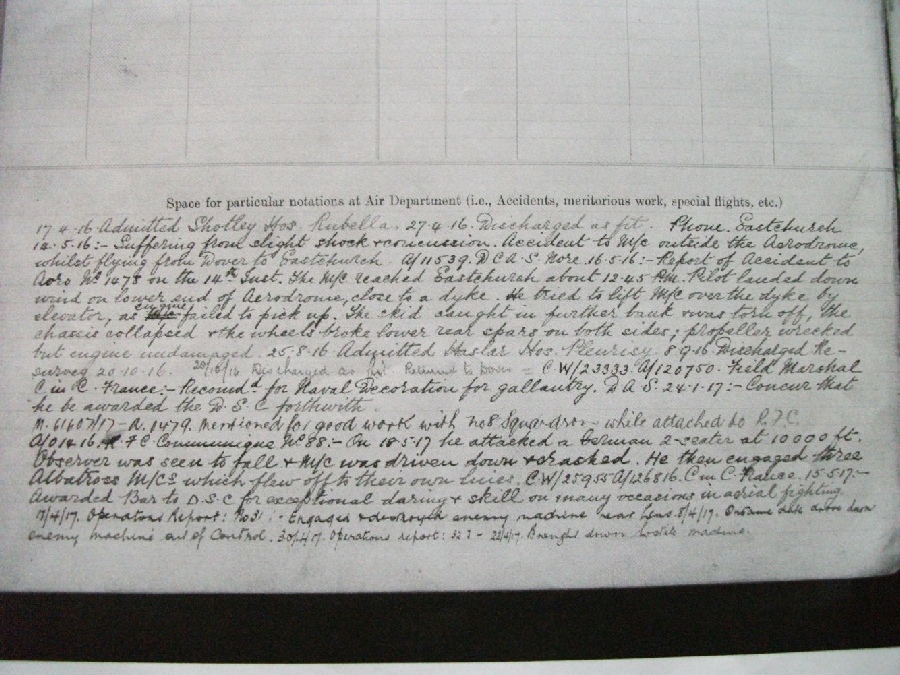 Space for particular notations at Air Department (i.e., Accidents, meritorious work, special flights, etc.)
17.4.16 Admitted Shotley Hos. Rubella. 27.4.16. Discharged as fit. Phone. Eastchurch
14.5.16:- Suffering from slight shock & concussion. Accident to M/c outside the Aerodrome,
whilst flying from Dover to Eastchurch. A/11539. D.C.A.S. Nore. 16.5.16:- Report of Accident to
Aero No 1475 on the 14th Inst. The M/c reached Eastchurch about 12.45 P.M. Pilot landed down
wind on lower end of Aerodrome, close to a dyke. He tried to lift M/c over the dyke by
elevator, as engine failed to pick up. The skid caught in further bank & was torn off, the
chassis collapsed & the wheels broke lower rear spars on both sides; propeller wrecked
but engine undamaged. 25.8.16 Admitted Haslar Hos. Pleurisy. 8.9.16 Discharged Re-
survey 20.10.16. 20/10/16 Discharged as fit. Returned to Dover = C.W/23333. A/120750. Field Marshal
C in C. France:- Recomd. for Naval Decoration for gallantry. D.A.S. 24.1.17:- Concur that
he be awarded the D.S.C forthwith.
M.61607/17 - R.1479. Mentioned for good work with No8 Squadron - while attached to R.F.C.
A/01416. R.F.C Communique No 88:- On 18.5.17 he attacked a German 2-seater at 10000 ft.
Observer was seen to fall & M/c was driven down & crashed. He then engaged three
Albatross M/Cs which flew off to their own lines. C.W/25955 A/126816. C in C. France. 15.5.17:-
Awarded Bar to D.S.C for exceptional daring & skill on many occasions in aerial fighting.
Operations Report: No 31:- Engaged & destroyed enemy machine near Lens 8/4/17. down
enemy machine out of control. 30/4/17. Operations report: 32:- Brought down hostile machine.